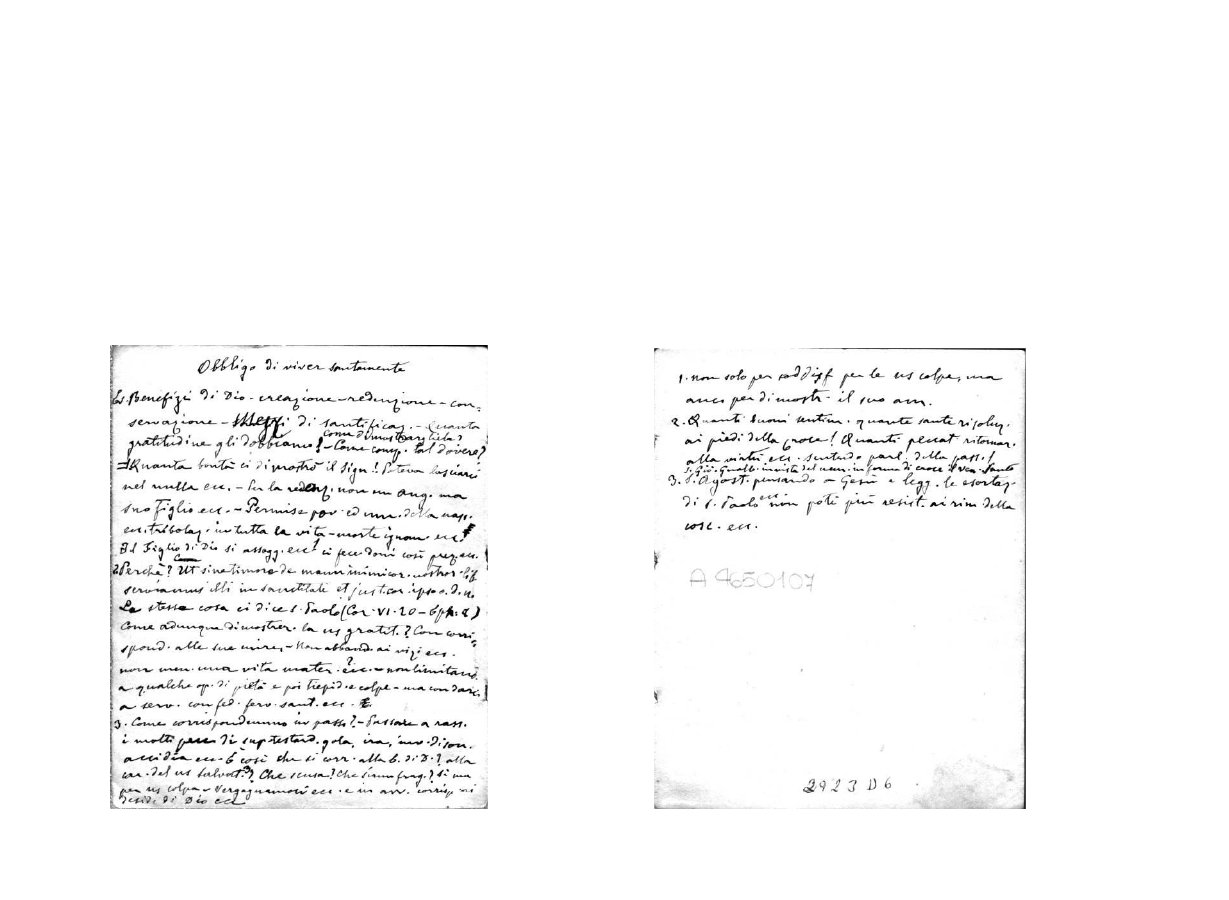 Obbligo di viver santamente
Es. Benefizi di Dio - creazione - redenzione - con-
servazione - Mezzi di santificaz. - Quanta
come dimostrargliela?
gratitudine gli dobbiamo! - Come comp. tal dovere?
Quanta bontà ci dimostrò il Sign.! Poteva lasciarci
nel nulla ecc. - Per la redenz. non un ang. ma
suo figlio ecc. - Permise pov. ed um. della nasc.
ecc. tribolaz. in tutta la vita - morte ignom. ecc.!
Il Figlio di Dio si assogg. ecc! ci fece doni così prez. ecc.
2. Perchè? Ut sine timore de manu inimicor. nostror. lib.
serviamus illi in sanctitate et just. cor. ipso o. d. n.
La stessa cosa ci dice S. Paolo (Cor. VI. 20 - Eph.
Come adunque dimostrer. la ns gratit.? Con corri-
spond. alle sue mire, - Non abband. ai vizi ecc.
non men. una vita mater. ecc. - non limitand.
a qualche op. di pietà e poi trepid. e colpe - ma con darci
a serv. con fed. ferv. sant. ecc.
3. Come corrispondemmo in pass.? - Passare a rass.
i molti pecc. di sup. testard. gola, ira, inv. dison.
accidia ecc. È così che si corr. alla b. di D.? alla
car. del ns salvat.? Che scusa? Che siamo frag.? Sì ma
per ns colpa - Vergogniamoci ecc. e in avv. corrisp. ai
desid. di Dio ecc.
1. non solo per soddisf per le ns colpe, ma
anco per dimostr. il suo am.
2. Quanti buoni sentim. quante sante risoluz.
ai piedi della croce! Quanti peccat. ritornar.
alla virtù ecc. sentendo parl. della pass.!
S. Gio. Gualb. in vista del nem. in forma di croce il Ven. Santo
3. S. Agost. pensando a Gesù e legg. le esortaz.
di S. Paolo ecc non potè più resist. ai rim. della
cosc. ecc.
A 4650107
2923 D 6